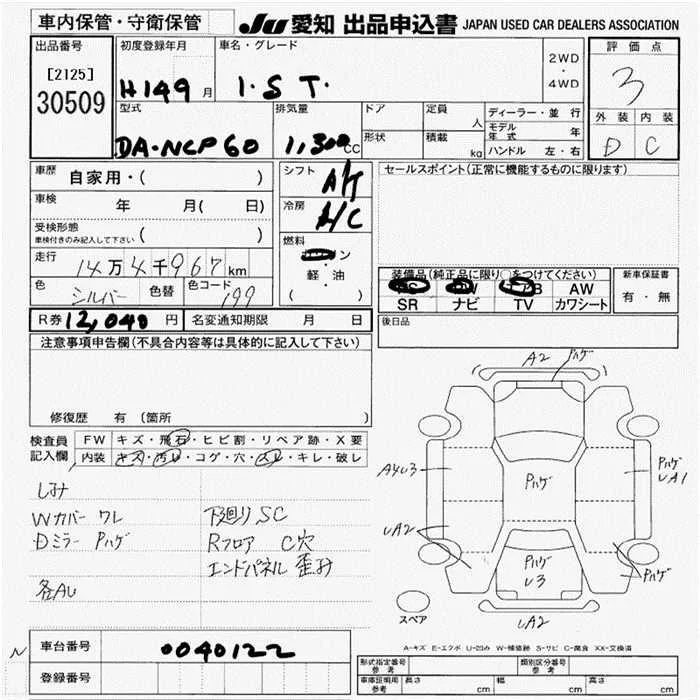 車内保管・守衛保管
JU 愛知 出品申込書 JAPAN USED CAR DEALERS ASSOCIATION
出品番号
[2125]
30509
初度登録年月
H14 9 月
車名・グレード
I.S T.
2WD
・
4WD
評価点
3
外装 内装
D C
型式
DA-NCP60
排気量
1,300 cc
ドア
形状
定員
人
積載
kg
ディーラー・並行
モデル年式 年
ハンドル 左・右
車歴
自家用・( )
車検
年 月( 日)
受検形態
車検付きのみ記入して下さい ( )
走行
14万4千967km
色
シルバー
色替
色コード
199
シフト
A/T
冷房
A/C
燃料
ガソリン
・
軽・油
( )
セールスポイント(正常に機能するものに限ります)
装備品(純正品に限り○をつけてください)
PS PW エアB AW
SR ナビ TV カワシート
新車保証書
有・無
後日品
R券 12,040 円
名変通知期限 月 日
注意事項申告欄(不具合内容等は具体的に記入して下さい)
修復歴 有(箇所 )
検査員
記入欄
FW キズ・飛石・ヒビ割・リペア跡・X要
内装 キズ・汚レ・コゲ・穴・スレ・キレ・破レ
しみ
Wカバー ワレ
Dミラー Pハゲ
各AU
下廻り SC
Rフロア C穴
エンドパネル 歪み
A2
Pハゲ
A4U3
Pハゲ
Pハゲ
UA1
UA2
Pハゲ
U3
Pハゲ
UA2
スペア
A-キズ E-エクボ U-凹み W-補修跡 S-サビ C-腐食 XX-交換済
N
車台番号
0040122
登録番号
形式指定番号
参考
類別区分番号
参考
車庫証明用
参考
長さ cm
幅 cm
高さ cm